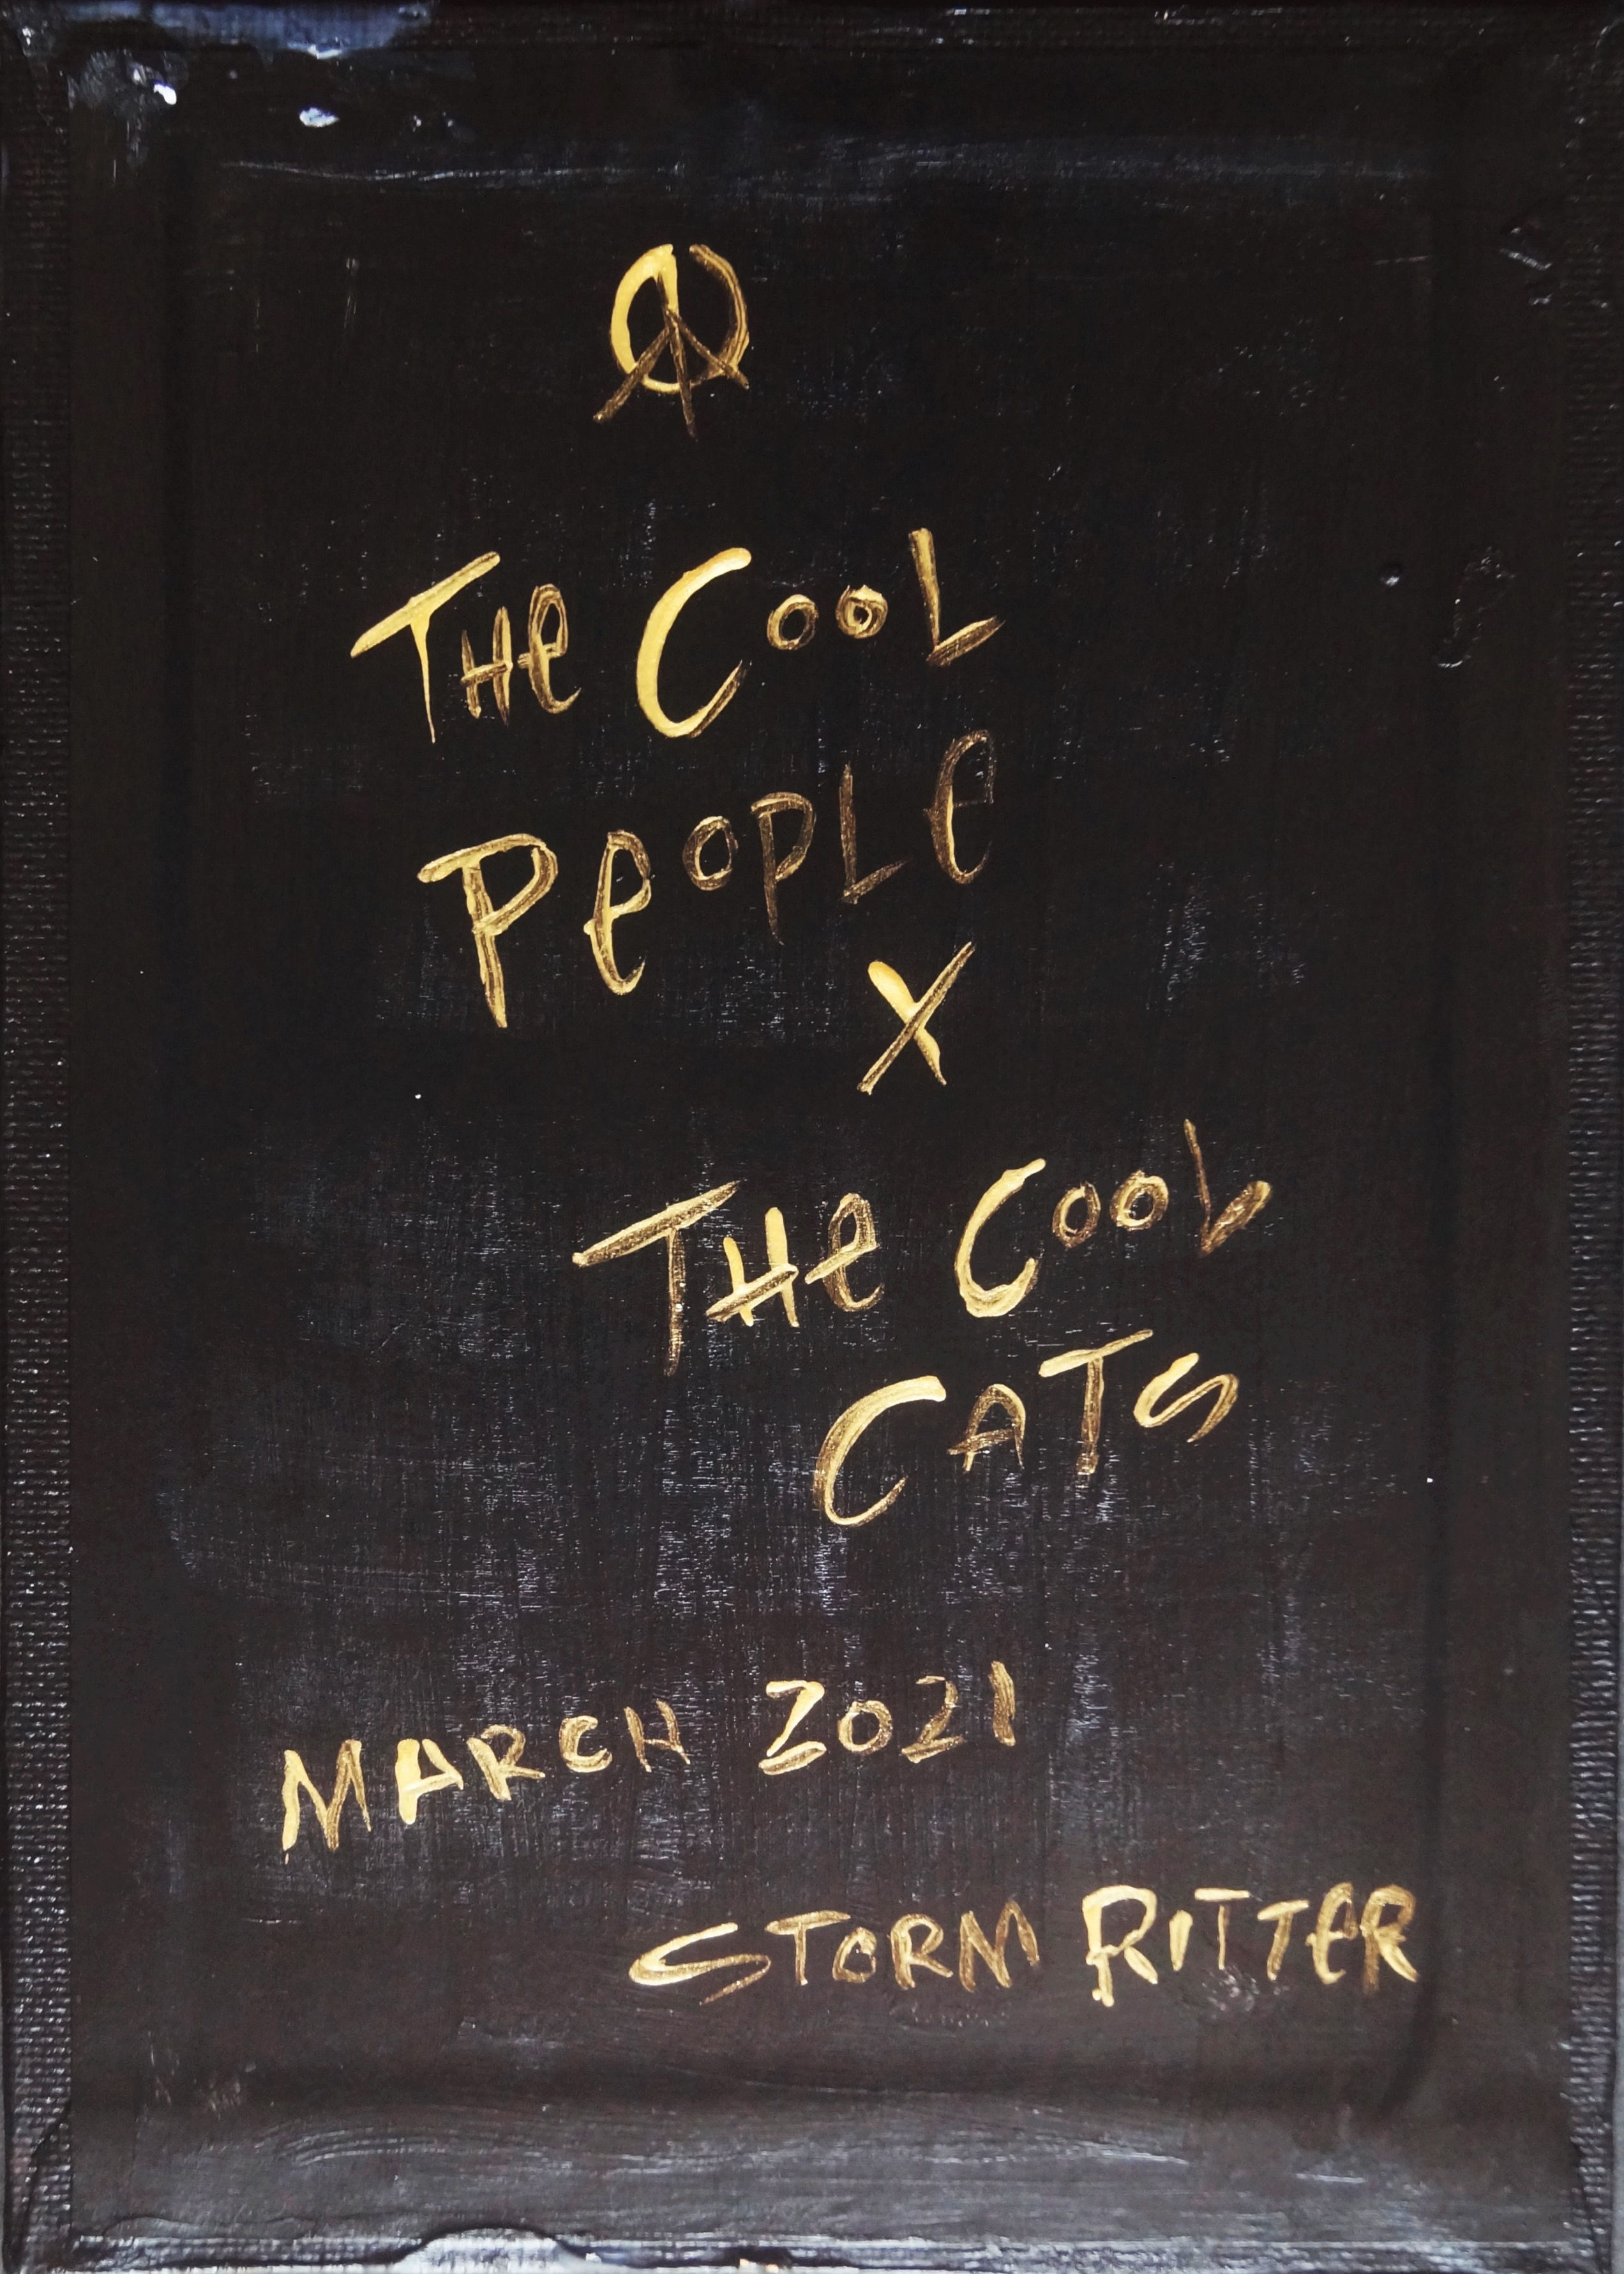 THe COOL
PeOPLe
X
THe COOL
CATS
MARCH 2021
STORM RITTeR